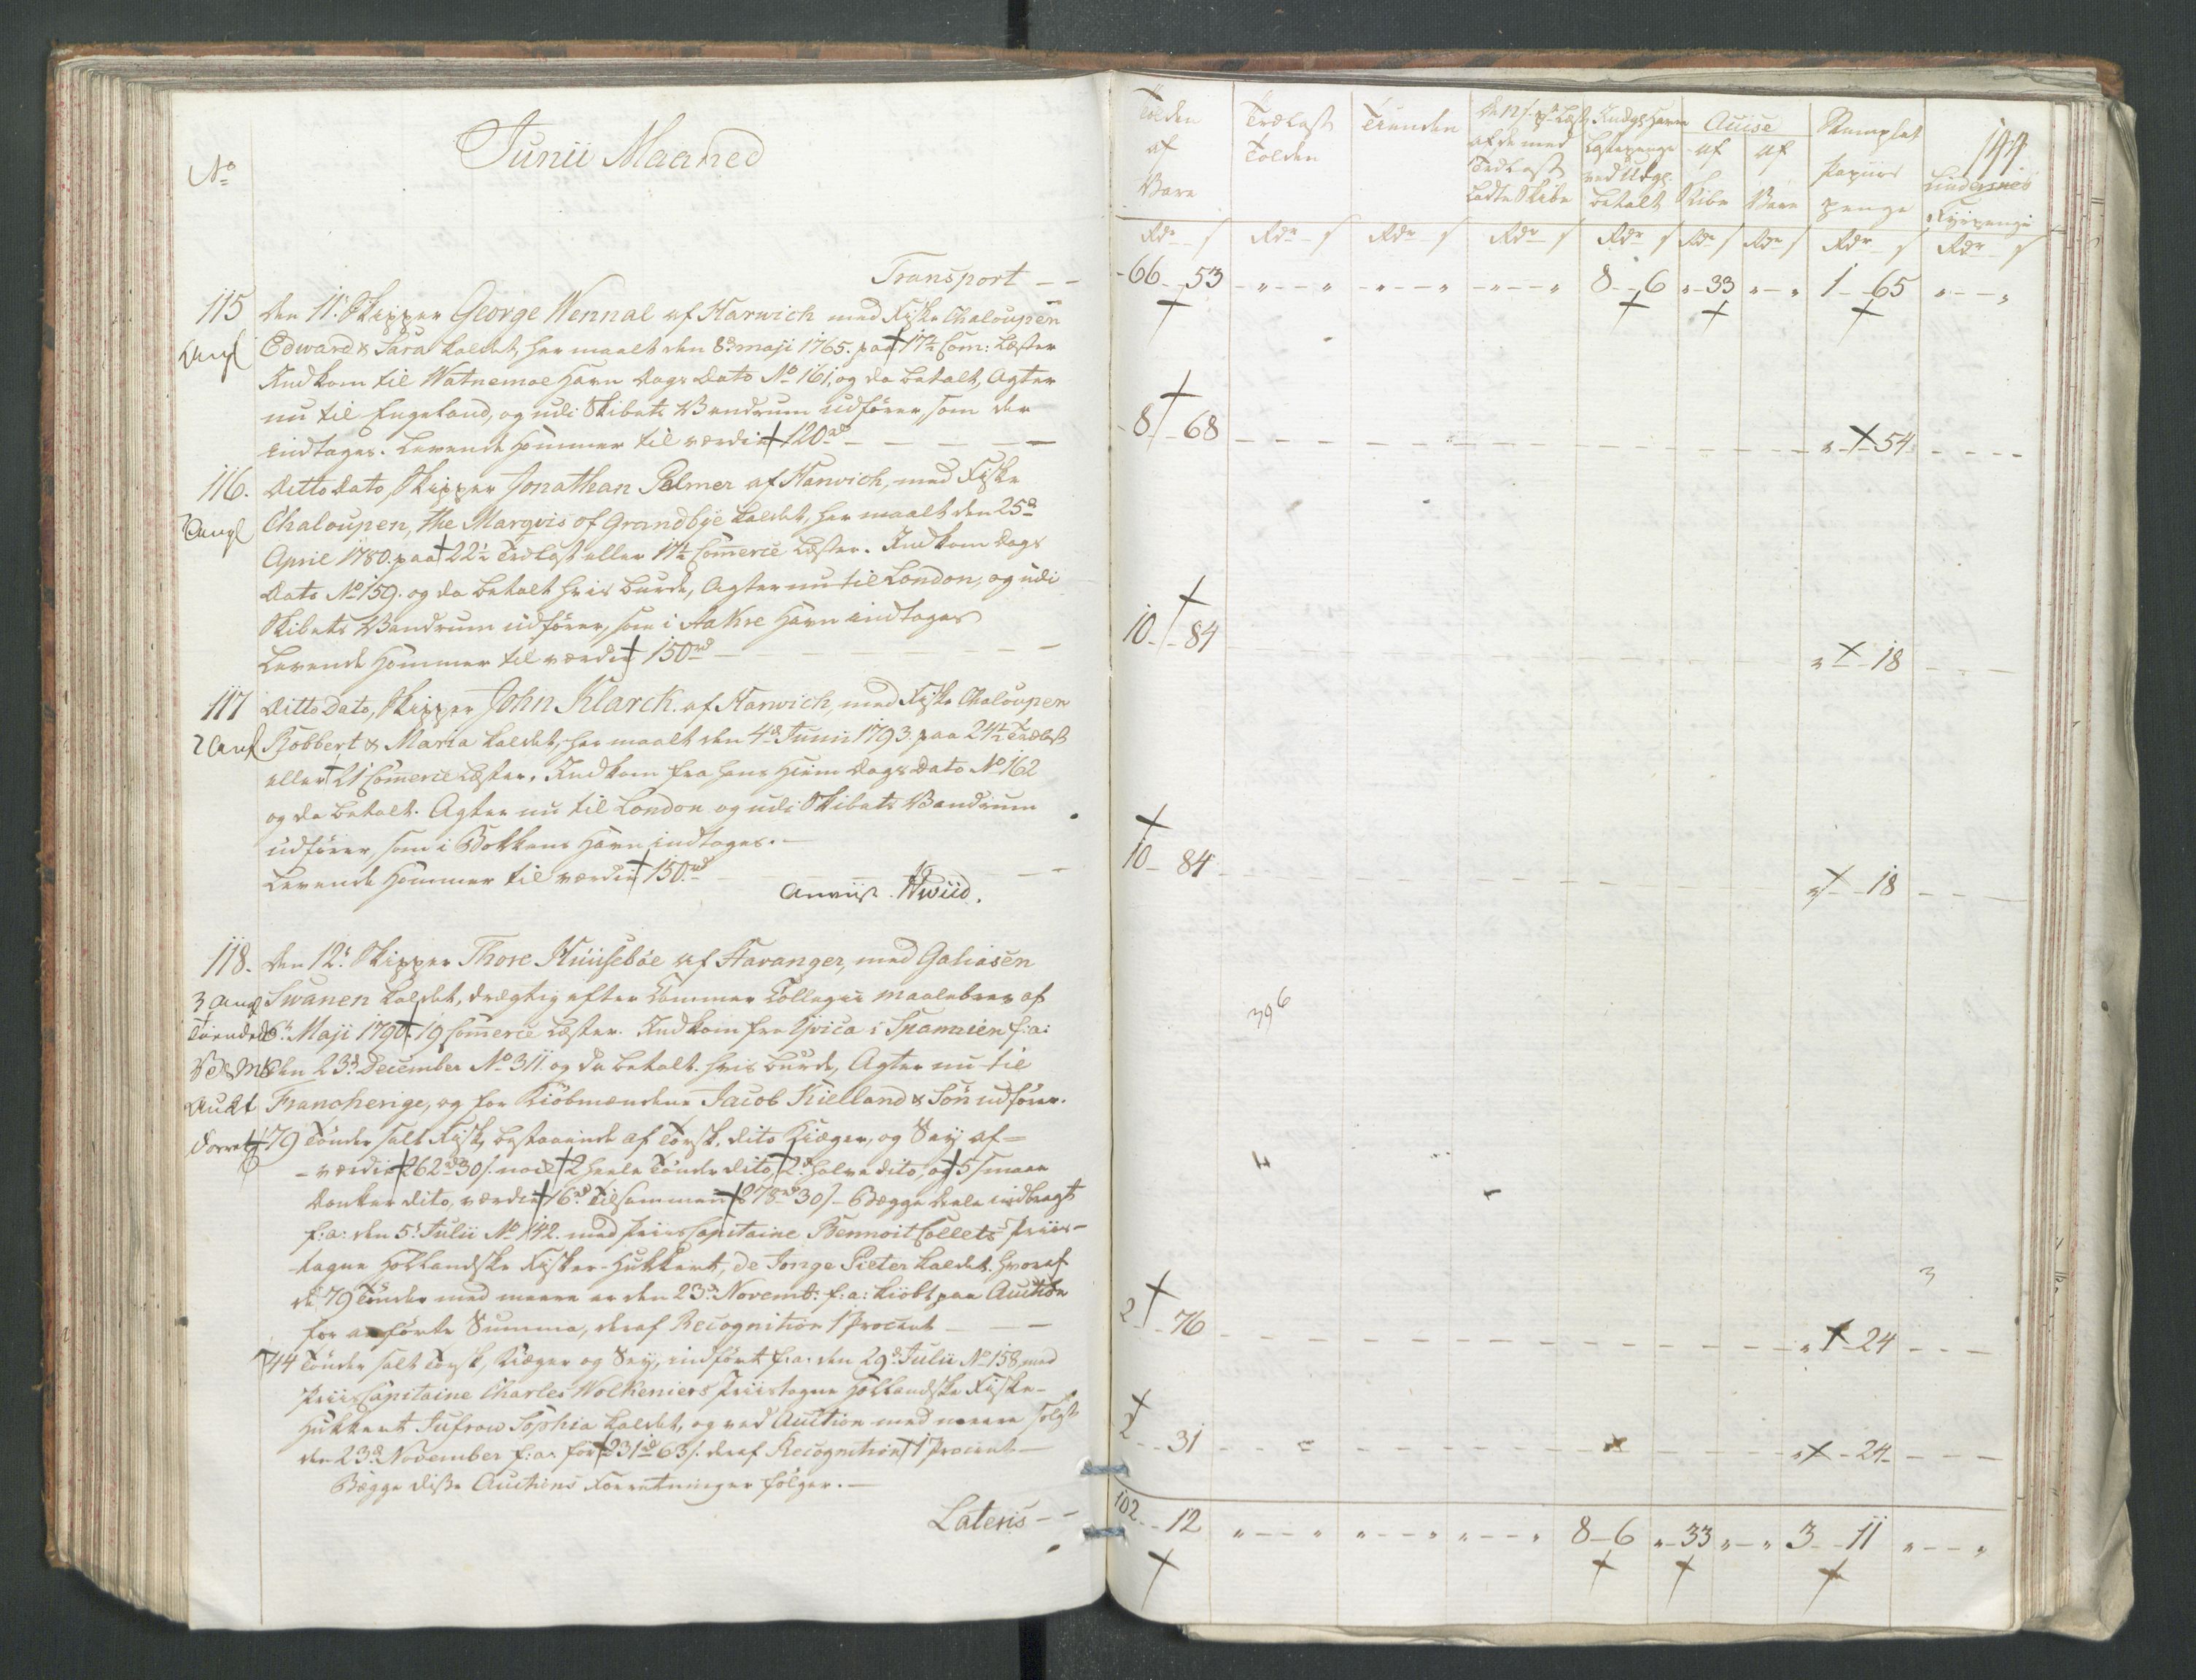 No
Junii Maaned
Transport
115 den 11t Skipper George Wennal af Harwich med Fiske Chaloupen
Edward & Sara kaldet, her maalt den 8d maji 1765. paa 17½ Com: Læster
Indkom til Watnemoe Havn Dags Dato No 161, og da betalt, Agter
nu til Engeland, og udi Skibets Vandrum udfører, som der
indtages. Levende Hommer til værdie 120rd
116. Ditto Dato, Skipper Jonathan Palmer af Harwich, med Fiske
Chaloupen, the Marqvis of Grandbye kaldet, her maalt den 25d
April 1780. paa 22½ Trælast eller 17½ Commerce Læster. Indkom Dags
Dato No 159. og da betalt hvis burde, Agter nu til London, og udi
Skibets Vandrum udfører, som i Aakre Havn indtages
Levende Hommer til værdie 150rd
117 Ditto Dato, Skipper John Klarck af Harwich, med Fiske Chaloupen
Robbert & Maria kaldet, her maalt den 4d Junii 1793. paa 24½ Trælast
eller 21 Commerce Læster. Indkom fra hans Hiem Dags Dato No 162
og da betalt. Agter nu til London og udi Skibets Vandrum
udfører, som i Bokkens Havn indtages.
Levende Hommer til værdie 150rd
118. den 12t Skipper Thore Huusebøe af Stavanger, med Galiasen
Swanen kaldet, drægtig efter Commer Collegii maalebrev af
6t Maji 1796. 19 Commerce Læster. Indkom fra Yvica i Spannien f:a:
den 23d December No 311. og da betalt hvis burde, Agter nu til
Francherige, og for Kiøbmændene Jacob Kielland & Søn udfører.
179 Tønder salt Fisk, bestaaende af Torsk, dito Kiæger, og Sey af
værdie 262rd 30s. nock 2 heele Tønder dito, 2d halve dito, og 5 smaae
Danker dito, værdie 16rd Tilsammen 278rd 30s Begge Deele indbragt
f:a: den 5t Julii No 142. med PriisCapitaine Bennoit Collets Priis-
tagne Hollandske Fisker-Hukkert, de Jonge Pieter kaldet. hvoraf
de 79 Tønder med meere er den 23d Novemb: f:a: kiøbt paa Auction
for anførte Summa, deraf Recognition 1 Procent
44 Tønder salt Torsk, Kiæger og Sey, indført f:a: den 29d Julii No 158 med
PriisCapitaine Charles Wolkeniers Priistagne Hollandske Fiske-
Hukkert Jufrow Sophia kaldet, og ved Auction med meere solgt
den 23d November f:a: for 231rd 63s. deraf Recognition 1 Procent
Begge disse Auctions Forretninger følger.
Lateris
Tolden af Vare
Trælast Tolden
Tienden
Accise
af Skibe
af Vare
Stemplet Papiirs penge
Lindersnes Fyrpenge
144
Rdr s Rdr s Rdr s Rdr s Rdr s Rdr s Rdr s Rdr s Rdr s
66 53 8 6 33 1 65
8 68 54
10 84 18
10 84 18
396
3
2 76 24
2 31 24
102 12 8 6 33 3 11